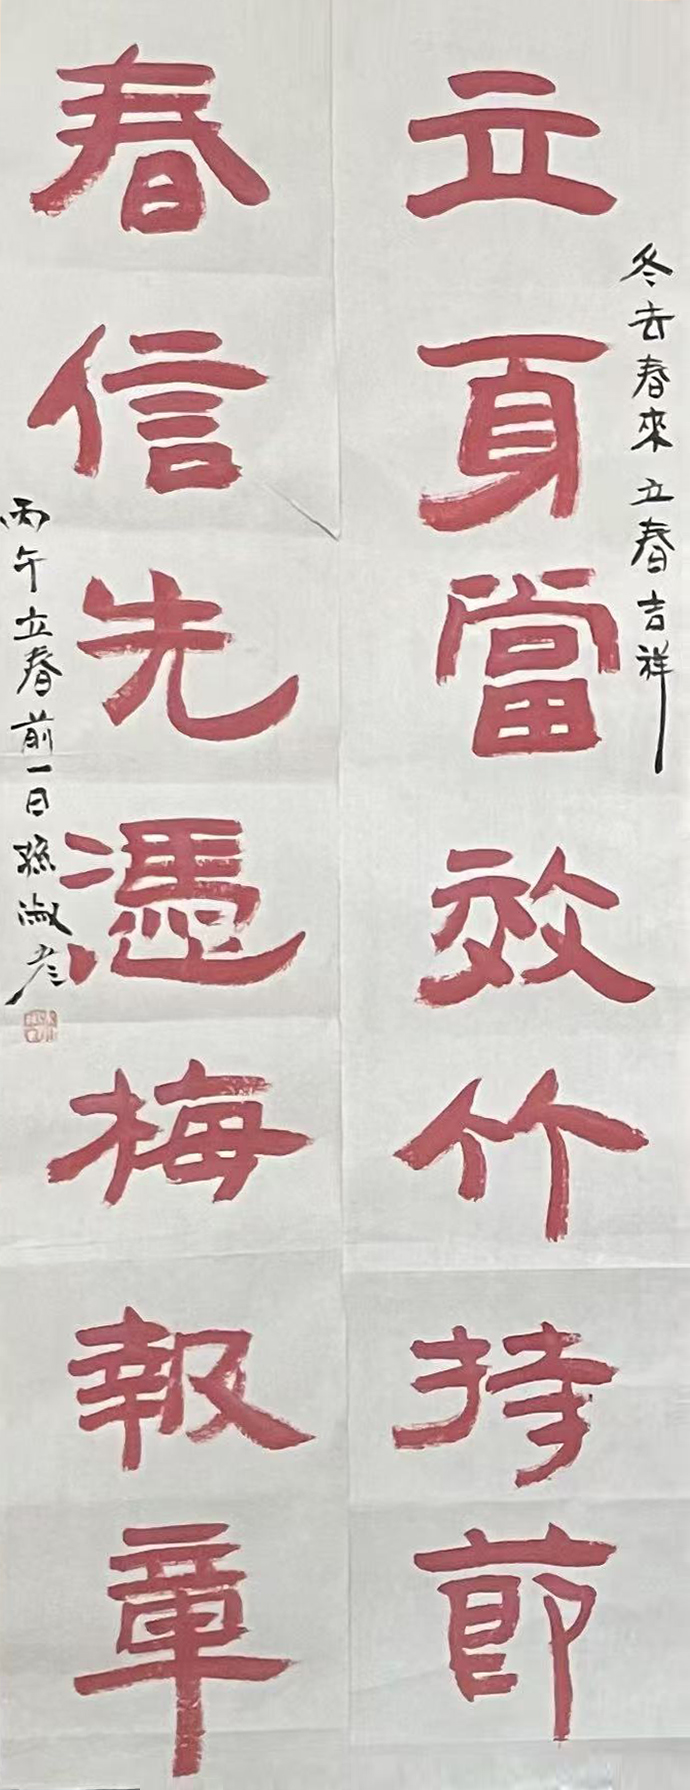 冬去春來立春吉祥
立身當效竹持節
春信先憑梅報章
丙午立春前一日孫淑彦